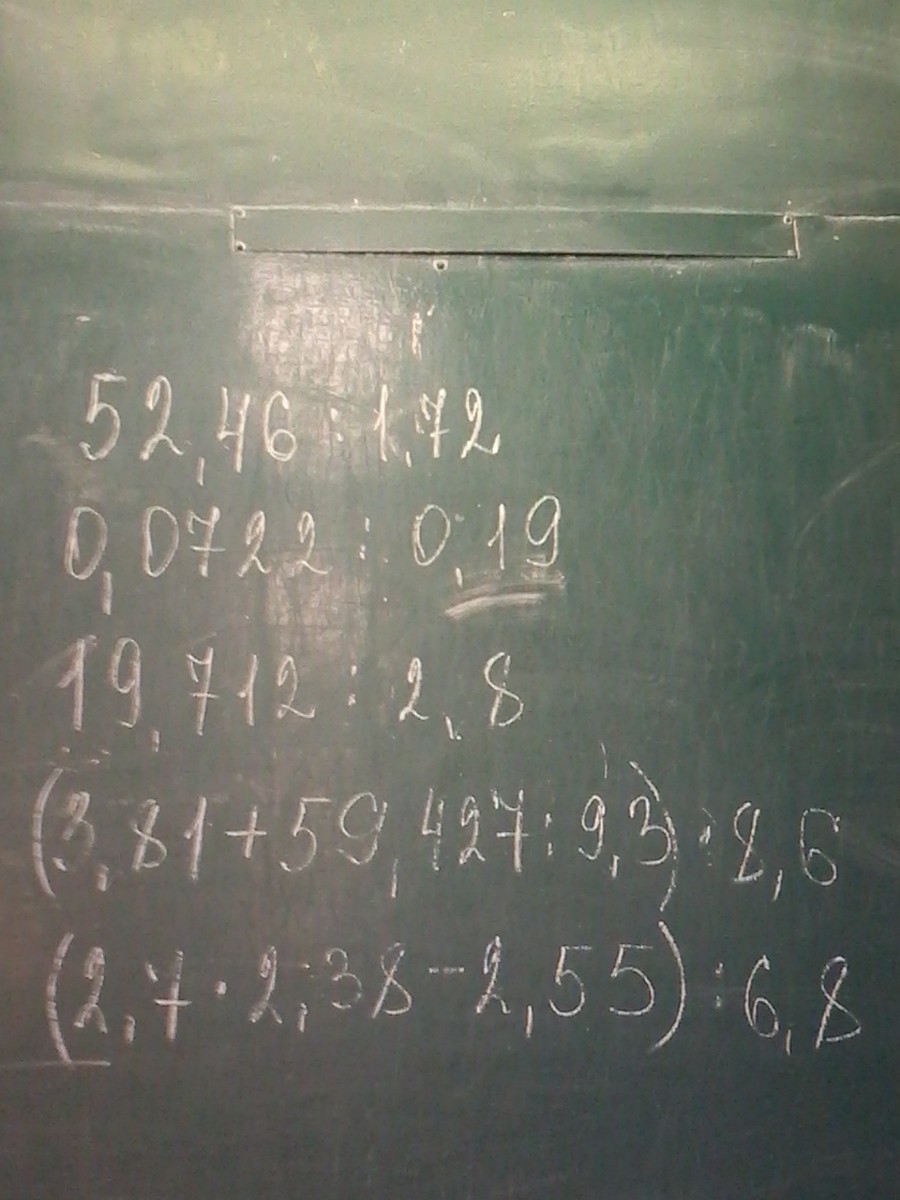 52,46 : 1,72
0,0722 : 0,19
19,712 : 2,8
(3,81+59,427:9,3):8,6
(2,7·2,38-2,55):6,8